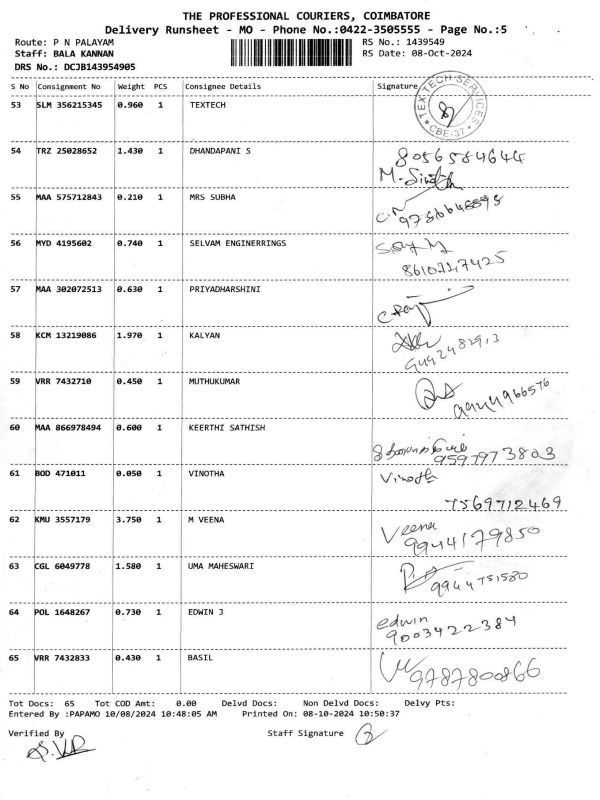 THE PROFESSIONAL COURIERS, COIMBATORE
Delivery Runsheet - MO - Phone No.:0422-3505555 - Page No.:5
Route: P N PALAYAM RS No.: 1439549
Staff: BALA KANNAN RS Date: 08-Oct-2024
DRS No.: DCJB143954905
S No Consignment No Weight PCS Consignee Details Signature
53 SLM 356215345 0.960 1 TEXTECH
TEXTECH-SERVICES
CBE-37.
54 TRZ 25028652 1.430 1 DHANDAPANI S 8056584644
55 MAA 575712843 0.210 1 MRS SUBHA
56 MYD 4195602 0.740 1 SELVAM ENGINERRINGS
57 MAA 302072513 0.630 1 PRIYADHARSHINI
58 KCM 13219086 1.970 1 KALYAN
59 VRR 7432710 0.450 1 MUTHUKUMAR
9944966576
60 MAA 866978494 0.600 1 KEERTHI SATHISH
9597973803
61 BOD 471011 0.050 1 VINOTHA Vinotha
7569712469
62 KMU 3557179 3.750 1 M VEENA Veena
9944179850
63 CGL 6049778 1.580 1 UMA MAHESWARI
9944751580
64 POL 1648267 0.730 1 EDWIN J edwin
9003422384
65 VRR 7432833 0.430 1 BASIL
9787800866
Tot Docs: 65 Tot COD Amt: 0.00 Delvd Docs: Non Delvd Docs: Delvy Pts:
Entered By :PAPAMO 10/08/2024 10:48:05 AM Printed On: 08-10-2024 10:50:37
Verified By Staff Signature